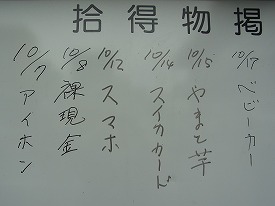 拾得物掲
10/17 ベビーカー
10/15 やまと芋
10/14 スイカカード
10/12 スマホ
10/8 裸現金
10/7 アイホン